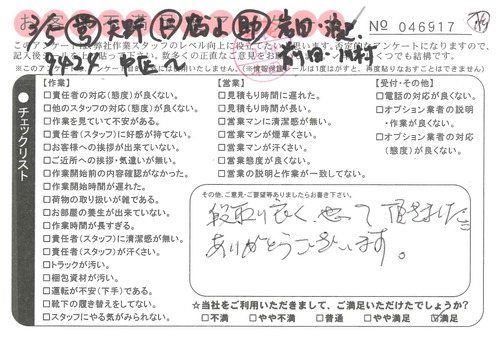 No 046917
3/5 ㊡ 天野
このアンケートは、弊社作業スタッフのレベル向上に役立てたいと思います。否定的なアンケートになりますので、
【作業】
□責任者の対応(態度)が良くない。
□他のスタッフの対応(態度)が良くない。
□作業を見ていて不安がある。
□責任者(スタッフ)に好感が持てない。
□お客様への挨拶が出来ていない。
□ご近所への挨拶・気遣いが無い。
□作業開始前の内容確認がなかった。
□作業開始時間が遅れた。
□荷物の取り扱いが雑である。
□お部屋の養生が出来ていない。
□作業時間が長すぎる。
□責任者(スタッフ)に清潔感が無い。
□責任者(スタッフ)が汗くさい。
□トラックが汚い。
□梱包資材が汚い。
□運転が不安(下手)である。
□靴下の履き替えをしてない。
□スタッフにやる気がみられない。
チェックリスト
【営業】
□見積もり時間に遅れた。
□見積もり時間が長い。
□営業マンに清潔感が無い。
□営業マンが煙草くさい。
□営業マンが汗くさい。
□営業態度が良くない。
□営業の説明と作業が一致してない。
【受付・その他】
□電話の対応が良くない。
□オプション業者の説明
・作業が良くない。
□オプション業者の対応
(態度)が良くない。
その他、ご意見・ご要望等ありましたらお書き下さい。
段取り良く、やって頂きました
ありがとうございます。
☆当社をご利用いただきまして、ご満足いただけたでしょうか?
□不満 □やや不満 □普通 □やや満足 ☑満足